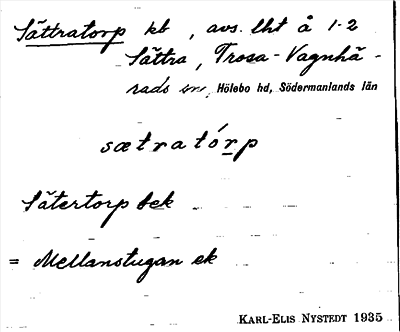 Sättratorp kb, avs. lht å 1-2
Sättra, Trosa-Vagnhä-
rads sn, Hölebo hd, Södermanlands län
sætratórp
Sätertorp bek
= Mellanstugan ek
KARL-ELIS NYSTEDT 1935